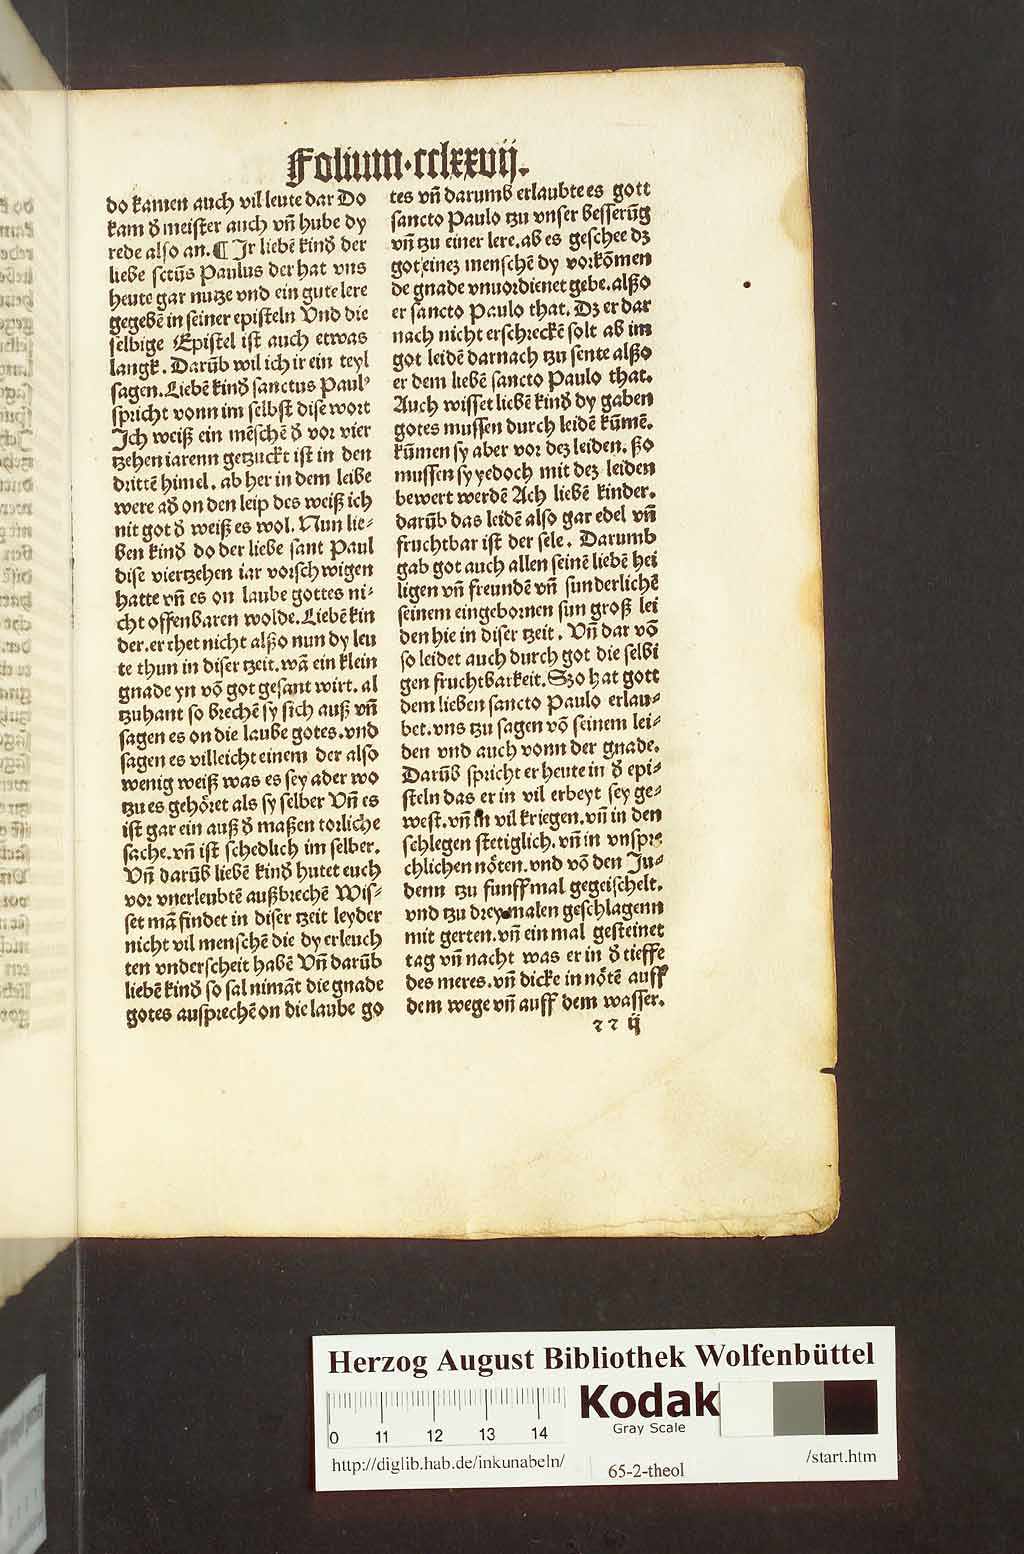 Folium·cclxxvij.
do kamen auch vil leute dar Do
kam đ meister auch vñ hube dy
rede also an. ¶ Jr liebē kinđ der
liebe sctūs Paulus der hat vns
heute gar nutze vnd ein gute lere
gegebē in seiner episteln Vnd die
selbige Epistel ist auch etwas
langk. Darūb wil ich ir ein teyl
sagen. Liebē kinđ sanctus Paulꝰ
spricht vonn im selbst dise wort
Jch weiß ein mēschē đ vor vier
tzehen iarenn getzuckt ist in den
drittē himel. ab her in dem leibe
were ađ on den leip des weiß ich
nit got đ weiß es wol. Nun lie⸗
ben kinđ do der liebe sant Paul
dise viertzehen iar vorschwigen
hatte vñ es on laube gottes ni⸗
cht offenbaren wolde. Liebē kin
der. er thet nicht alßo nun dy leu
te thun in diser tzeit. wā ein klein
gnade yn vō got gesant wirt. al
tzuhant so brechē sy sich auß vñ
sagen es on die laube gotes. vnd
sagen es villeicht einem der also
wenig weiß was es sey ader wo
tzu es gehöret als sy selber Vñ es
ist gar ein auß đ maßen torliche
sache. vñ ist schedlich im selber.
Vñ darūb liebē kinđ hutet euch
vor vnerleubtē außbrechē Wis⸗
set mā findet in diser tzeit leyder
nicht vil menschē die dy erleuch
ten vnderscheit habē Vñ darūb
liebē kinđ so sal nimāt die gnade
gotes ausprechē on die laube go
tes vñ darumb erlaubte es gott
sancto Paulo tzu vnser besserūg
vñ tzu einer lere. ab es geschee dz
got einez menschē dy vorkōmen
de gnade vnuordienet gebe. alßo
er sancto Paulo that. Dz er dar
nach nicht erschreckē solt ab im
got leidē darnach tzu sente alßo
er dem liebē sancto Paulo that.
Auch wisset liebē kinđ dy gaben
gotes mussen durch leidē kūmē.
kūmen sy aber vor dez leiden. ßo
mussen sy yedoch mit dez leiden
bewert werdē Ach liebē kinder.
darūb das leidē also gar edel vñ
fruchtbar ist der sele. Darumb
gab got auch allen seinē liebē hei
ligen vñ freundē vñ sunderlichē
seinem eingebornen sun groß lei
den hie in diser tzeit. Vñ dar vō
so leidet auch durch got die selbi
gen fruchtbarkeit. Szo hat gott
dem lieben sancto Paulo erlau⸗
bet. vns tzu sagen vō seinem lei⸗
den vnd auch vonn der gnade.
Darūb spricht er heute in đ epi⸗
steln das er in vil erbeyt sey ge⸗
west. vñ in vil kriegen. vñ in den
schlegen stetiglich. vñ in vnspre
chlichen nöten. vnd vō den Ju⸗
denn tzu funffmal gegeischelt.
vnd tzu dreymalen geschlagenn
mit gerten. vñ ein mal gesteinet
tag vñ nacht was er in đ tieffe
des meres. vñ dicke in nötē auff
dem wege vñ auff dem wasser.
Herzog August Bibliothek Wolfenbüttel
Kodak
Gray Scale
0 11 12 13 14
http://diglib.hab.de/inkunabeln/
65-2-theol
/start.htm